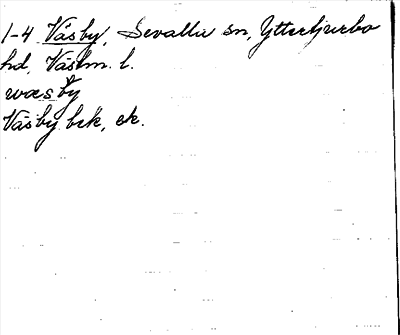 1-4 Väsby, Sevalla sn, Yttertjurbo
hd, Västm. l.
wæsby
Väsby bek, ek.